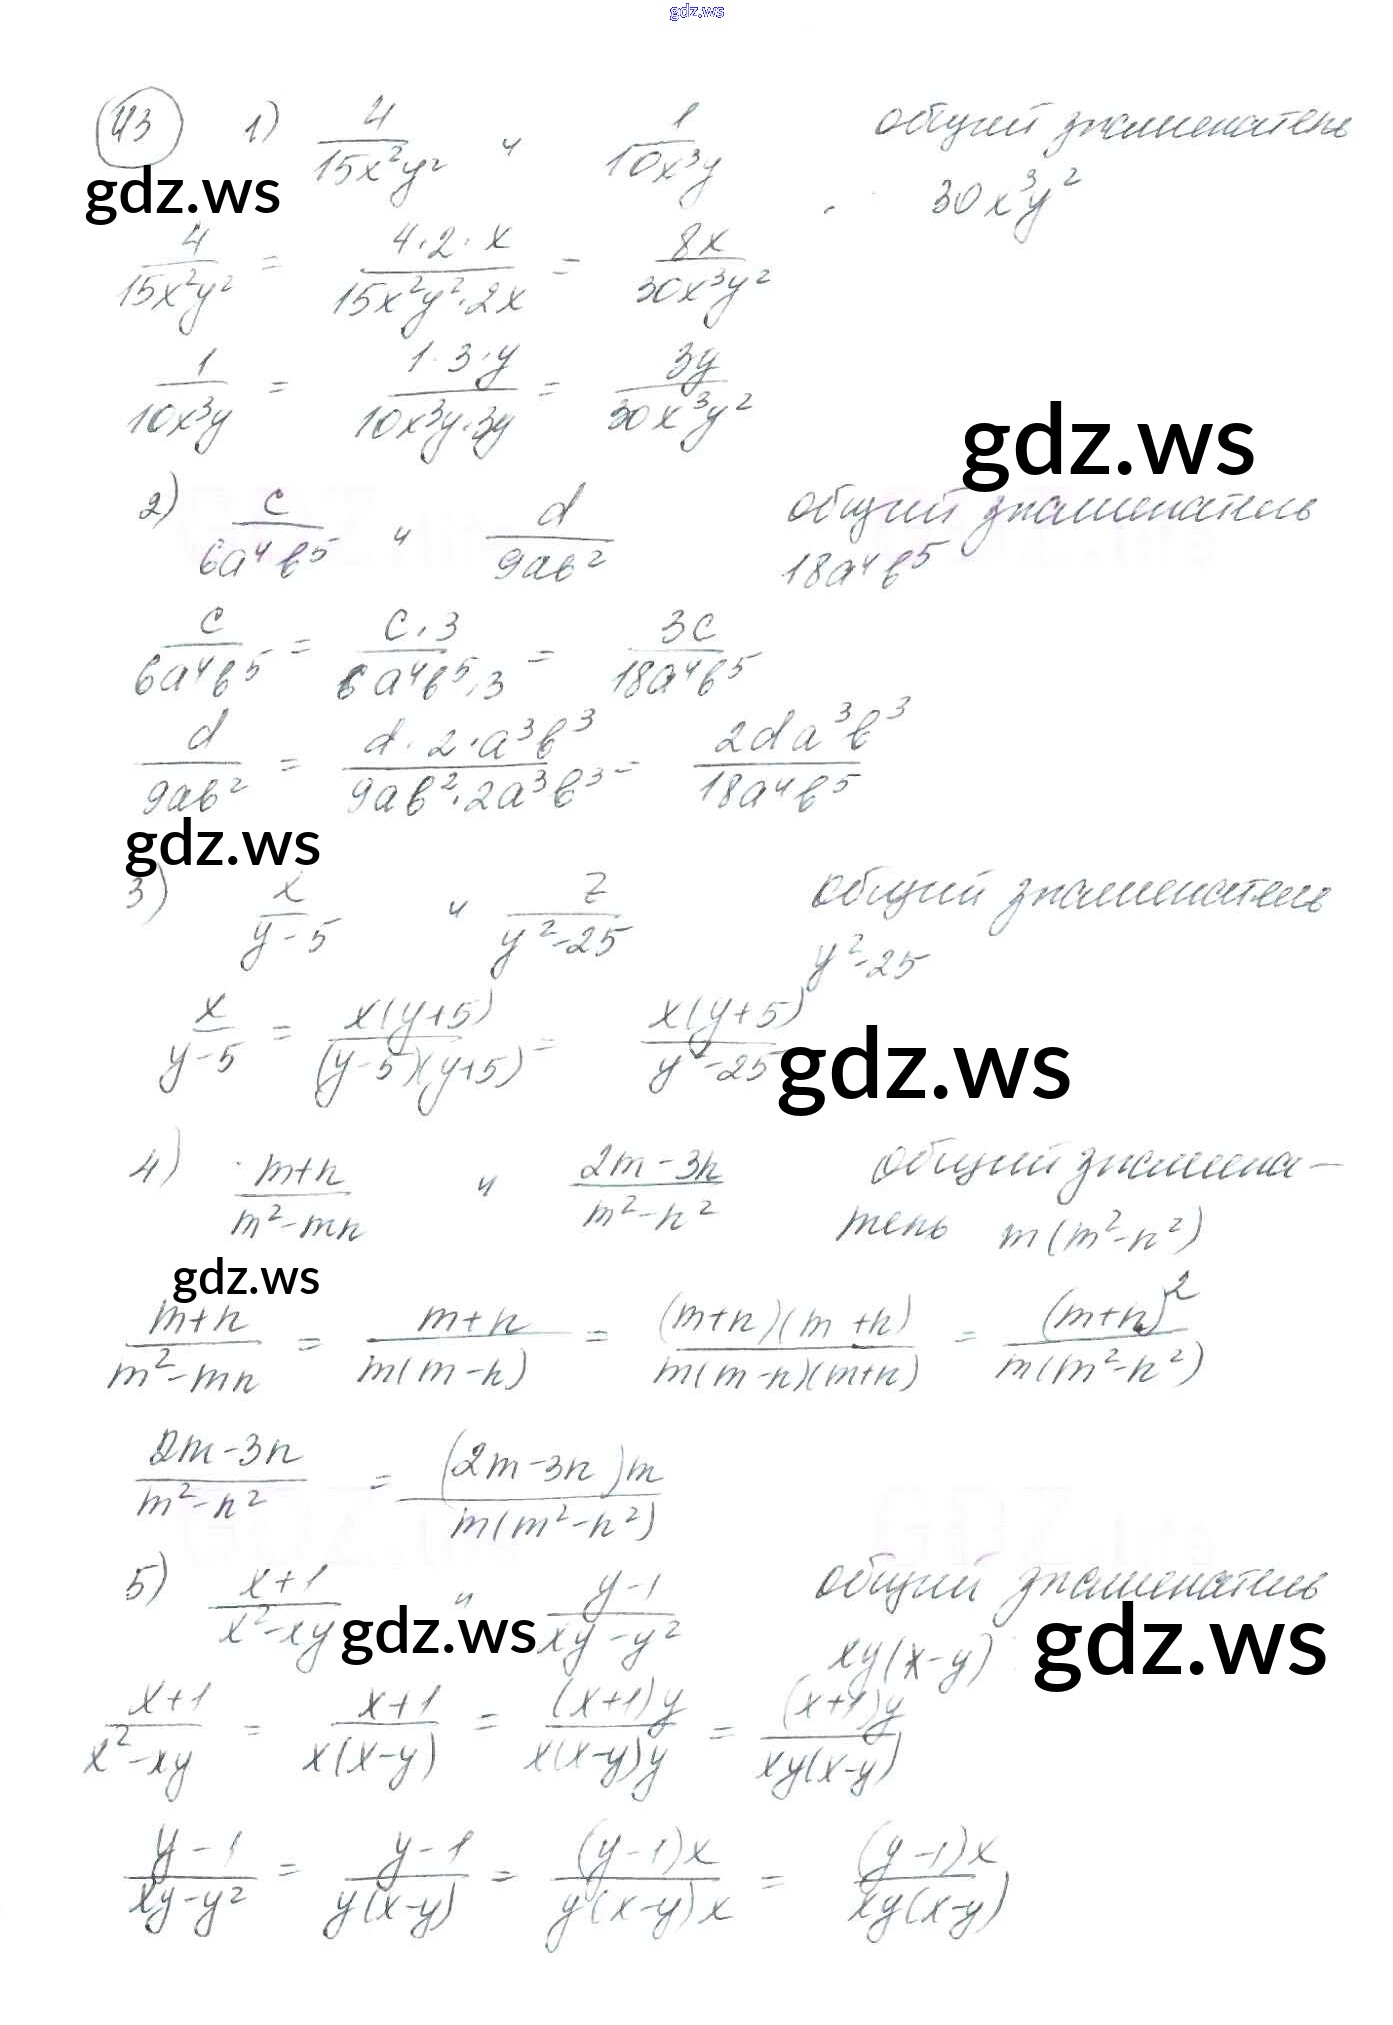 gdz.ws
43 1) 4/(15x²y²) и 1/(10x³y) общий знаменатель
30x³y²
gdz.ws
4/(15x²y²) = (4·2·x)/(15x²y²·2x) = 8x/(30x³y²)
1/(10x³y) = (1·3·y)/(10x³y·3y) = 3y/(30x³y²)
gdz.ws
2) c/(6a⁴b⁵) и d/(9ab²) общий знаменатель
18a⁴b⁵
c/(6a⁴b⁵) = (c·3)/(6a⁴b⁵·3) = 3c/(18a⁴b⁵)
d/(9ab²) = (d·2·a³b³)/(9ab²·2a³b³) = (2da³b³)/(18a⁴b⁵)
gdz.ws
3) x/(y-5) и z/(y²-25) общий знаменатель
y²-25
x/(y-5) = (x(y+5))/((y-5)(y+5)) = (x(y+5))/(y²-25)
gdz.ws
4) (m+n)/(m²-mn) и (2m-3n)/(m²-n²) общий знамена-
тель m(m²-n²)
gdz.ws
(m+n)/(m²-mn) = (m+n)/(m(m-n)) = ((m+n)(m+n))/(m(m-n)(m+n)) = (m+n)²/(m(m²-n²))
(2m-3n)/(m²-n²) = ((2m-3n)m)/(m(m²-n²))
5) (x+1)/(x²-xy) и (y-1)/(xy-y²) общий знаменатель
gdz.ws
xy(x-y)
gdz.ws
(x+1)/(x²-xy) = (x+1)/(x(x-y)) = ((x+1)y)/(x(x-y)y) = ((x+1)y)/(xy(x-y))
(y-1)/(xy-y²) = (y-1)/(y(x-y)) = ((y-1)x)/(y(x-y)x) = ((y-1)x)/(xy(x-y))